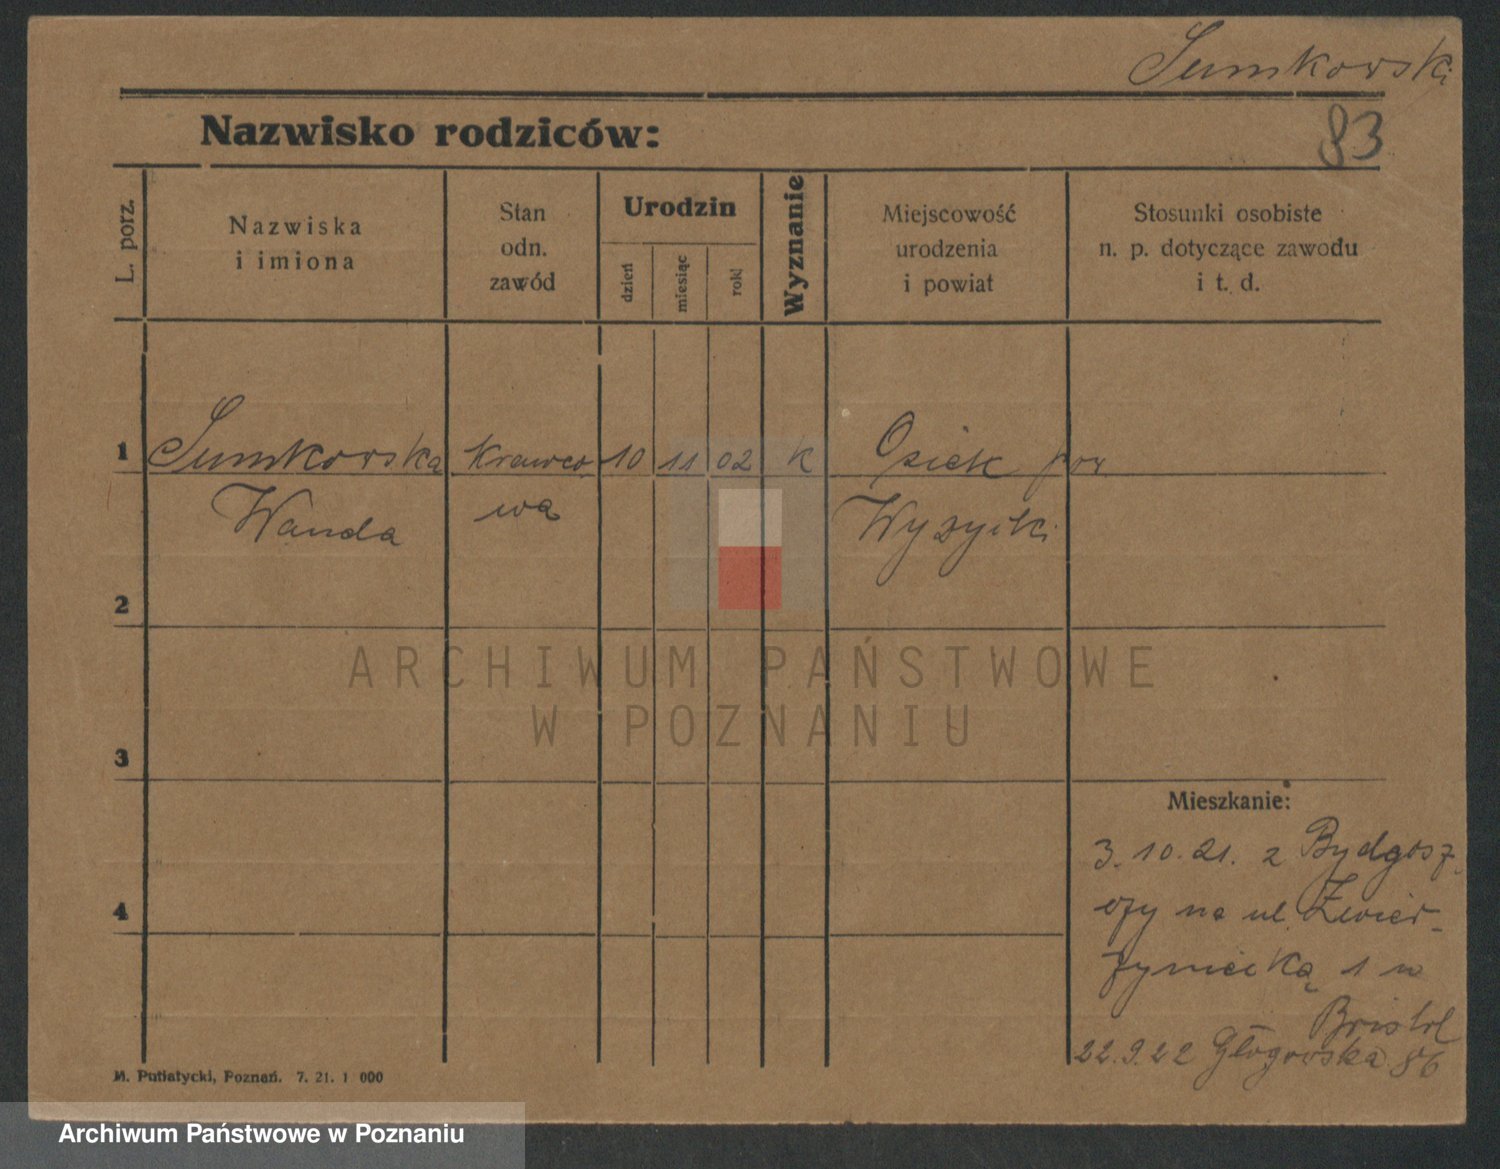 Sumkowski
83
Nazwisko rodziców:
L. porz.
Nazwiska
i imiona
Stan
odn.
zawód
Urodzin
dzień
miesiąc
rok
Wyznanie
Miejscowość
urodzenia
i powiat
Stosunki osobiste
n. p. dotyczące zawodu
i t. d.
1 Sumkowska Krawco 10 11 02 k Osiek pow
Wanda wa Wyrzyski
2
ARCHIWUM PAŃSTWOWE
W POZNANIU
3
Mieszkanie:
3.10.21. z Bydgosz
czy na ul. Zwier-
4
zyniecką 1 w
Bristol
22.9.22 Głogowska 86
M. Putiatycki, Poznań. 7. 21. 1 000
Archiwum Państwowe w Poznaniu